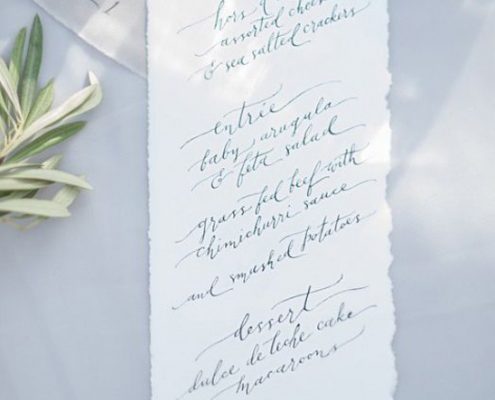 hors d'
assorted chee
& sea salted crackers
entrée
baby arugula
& feta salad
grass fed beef with
chimichurri sauce
and smashed potatoes
dessert
dulce de leche cake
macaroons